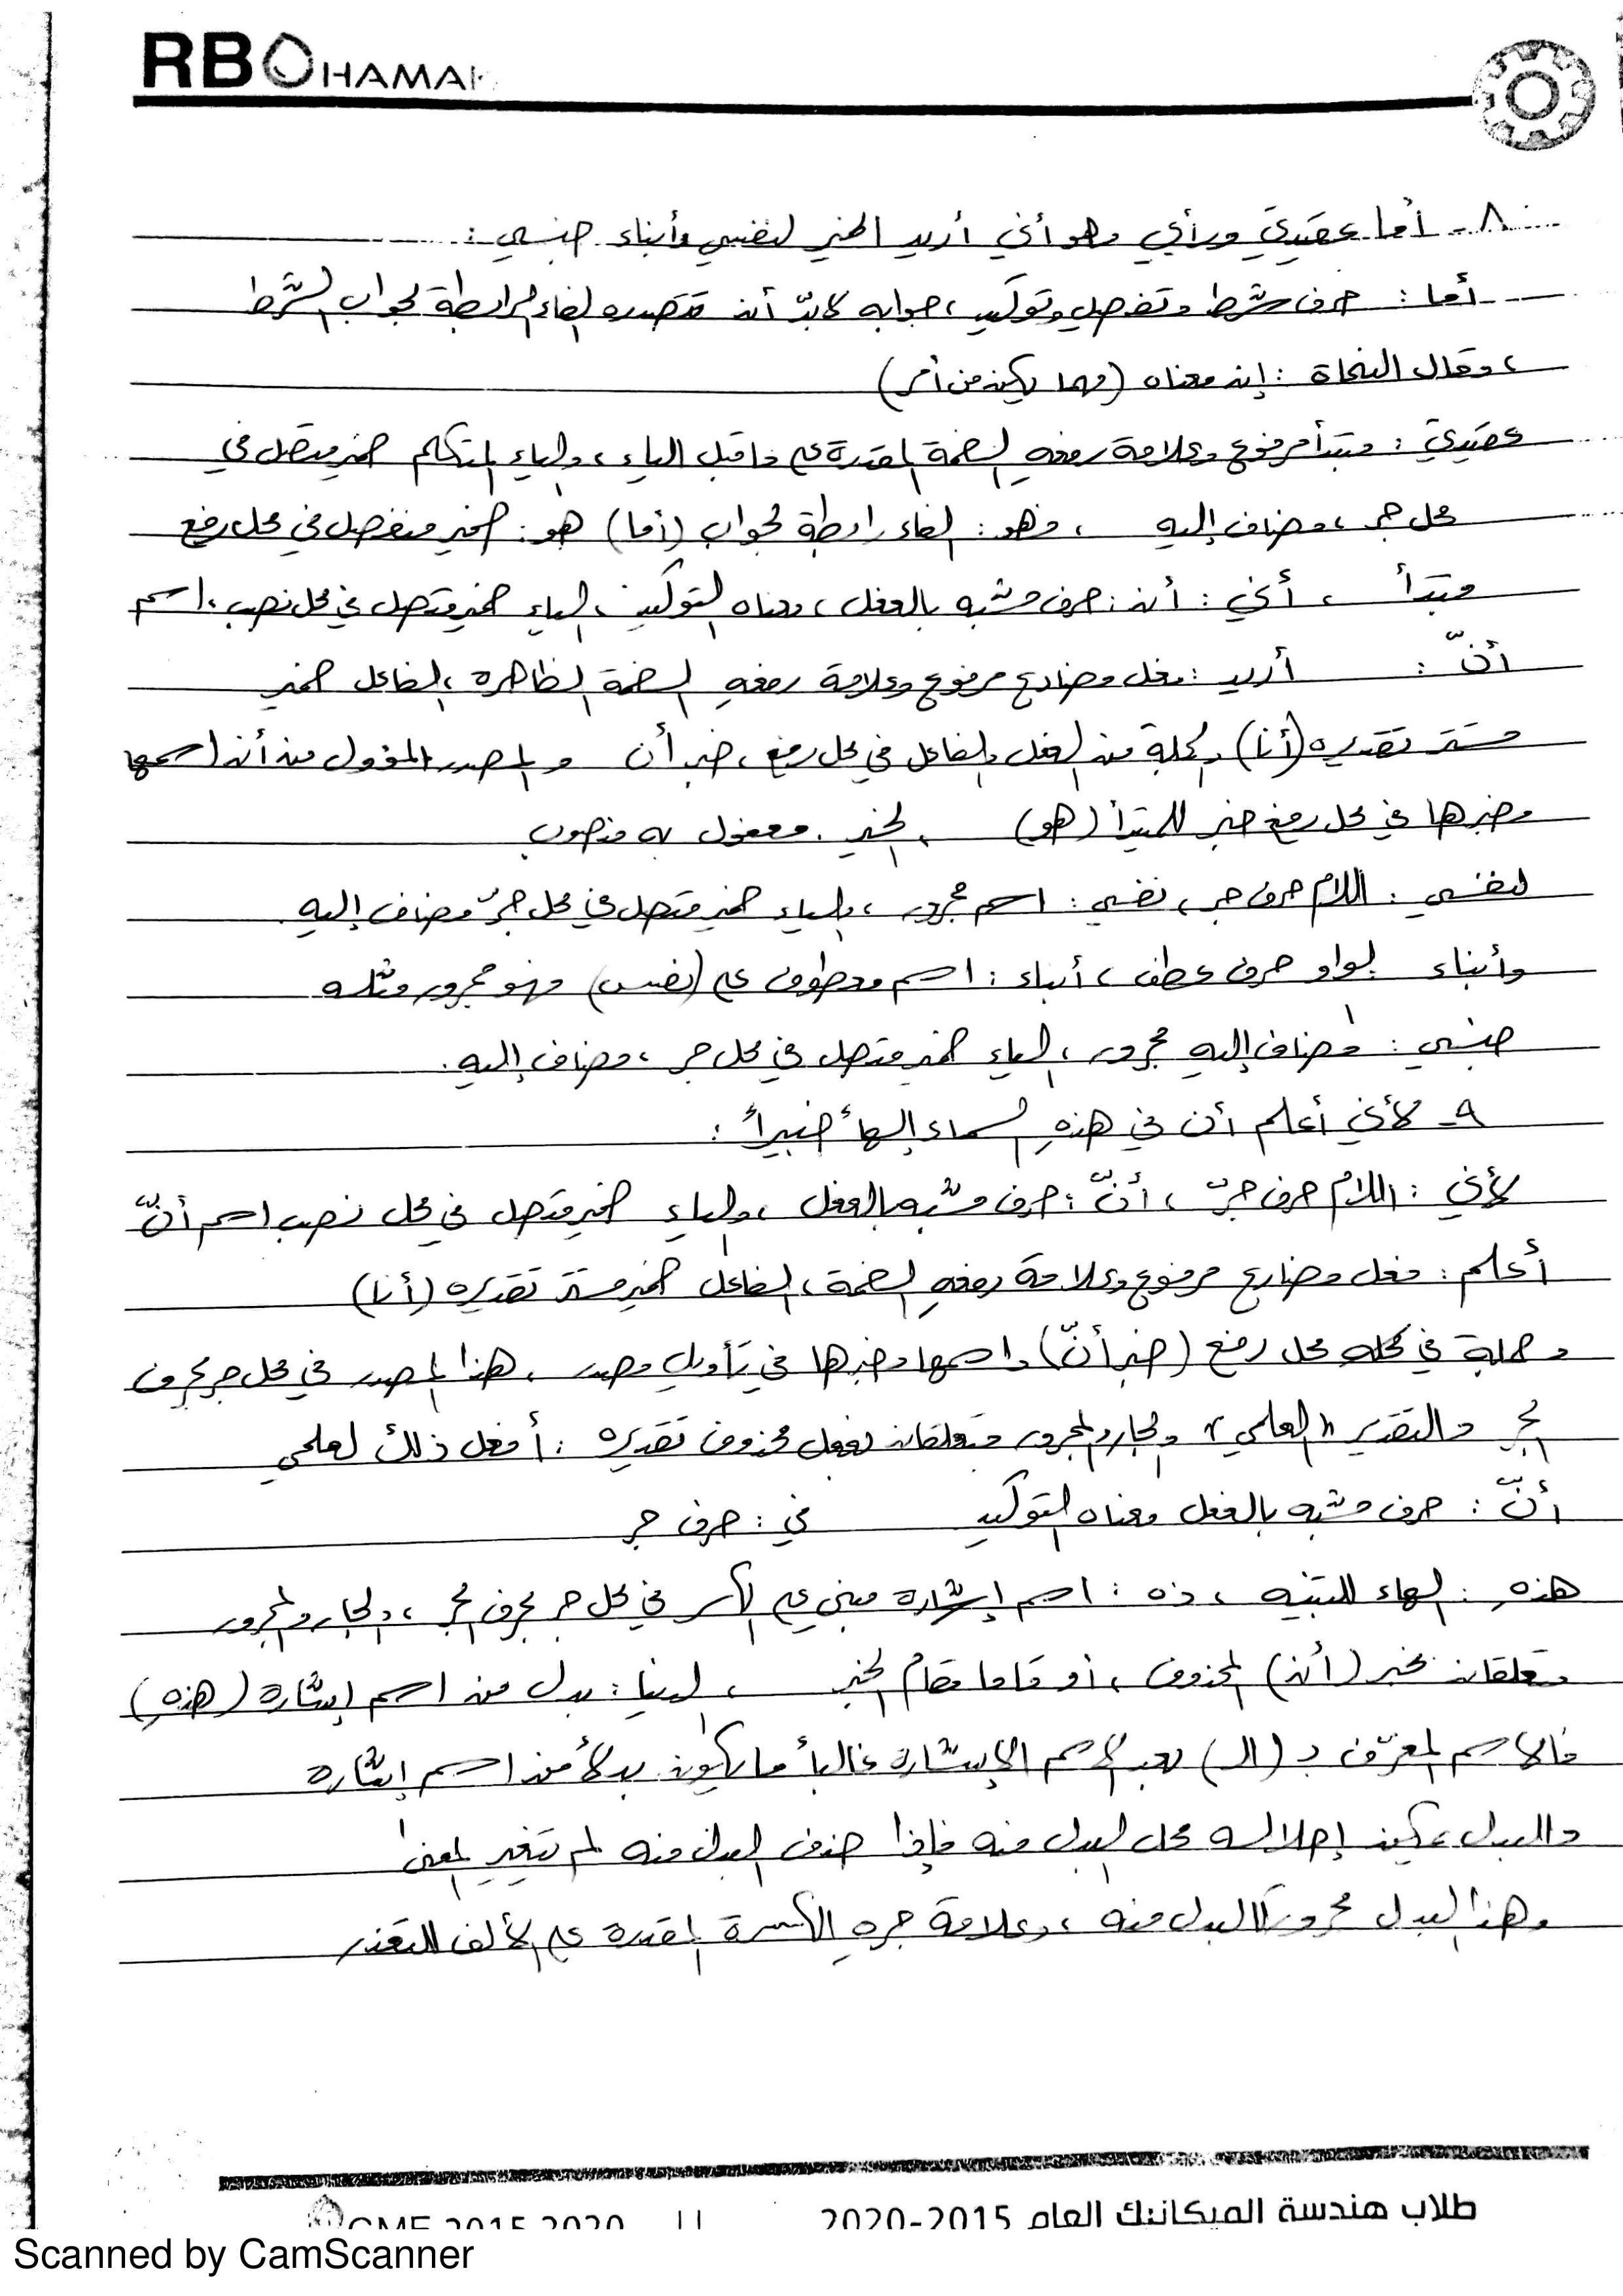 RB HAMAK
٨- أما عقيدتي ورأيي وهو أني أريد الخير لنفسي وأبناء جنسي :
أما : حرف شرط وتفصيل وتوكيد ، جوابه لابدّ أن تتصدره الفاء الرابطة لجواب الشرط
، وقال النحاة : إن معناه (مهما يكن من أمر)
عقيدتي : مبتدأ مرفوع وعلامة رفعه الضمة المقدرة على ما قبل الياء ، والياء المتكلم ضمير متصل في
محل جر ، مضاف إليه ، فهو : الفاء رابطة لجواب (أما) هو : ضمير منفصل في محل رفع
مبتدأ ، أني : أن : حرف مشبه بالفعل ، معناه التوكيد ، الياء ضمير متصل في محل نصب ، اسم
أنّ : أريد : فعل مضارع مرفوع وعلامة رفعه الضمة الظاهرة ، الفاعل ضمير
مستتر تقديره (أنا) والجملة من الفعل والفاعل في محل رفع ، خبر أن والمصدر المؤول من أن اسمها
وخبرها في محل رفع خبر للمبتدأ (هو) ، الخير . مفعول به منصوب
لنفسي : اللام حرف جر ، نفسي : اسم مجرور ، والياء ضمير متصل في محل جرّ مضاف إليه .
وأبناء لواو حرف عطف ، أبناء : اسم معطوف على (نفس) فهو مجرور مثله
جنسي : مضاف إليه مجرور ، الياء ضمير متصل في محل جر ، مضاف إليه .
٩- لأني أعلم أن في هذهِ السماء إلهاً خبيراً :
لأني : اللام حرف جرّ ، أنّ : حرف مشبه بالفعل ، والياء ضمير متصل في محل نصب اسم أنّ
أعلم : فعل مضارع مرفوع وعلامة رفعه الضمة ، الفاعل ضمير مستتر تقديره (أنا)
وجملة في محله محل رفع (خبر أنّ) واسمها وخبرها في تأويل مصدر ، هذا المصدر في محل جر بحرف
الجر والتقدير "العلمي" والجار والمجرور متعلقان بفعل محذوف تقديره : أفعل ذلك لعلمي
أنّ : حرف مشبه بالفعل معناه التوكيد في : حرف جر
هذهِ : الهاء للتنبيه ، ذه : اسم إشارة مبني على الكسر في محل جر بحرف الجر ، والجار والمجرور
متعلقان بخبر (أن) المحذوف ، أو قاما مقام الخبر ، لدنيا : بدل من اسم إشارة (هذهِ)
فالاسم المعرّف بـ (الـ) بعد الاسم الإشارة غالباً ما يكون بدلاً من اسم إشارة
والبدل يمكن إحلاله محل المبدل منه فإذا حذف المبدل منه لم يتغير المعنى
وهذا البدل مجرور كالمبدل منه ، وعلامة جره الكسرة المقدرة على الألف للتعذر
طلاب هندسة الميكانيك العام 2015-2020 || GME 2015 2020
Scanned by CamScanner